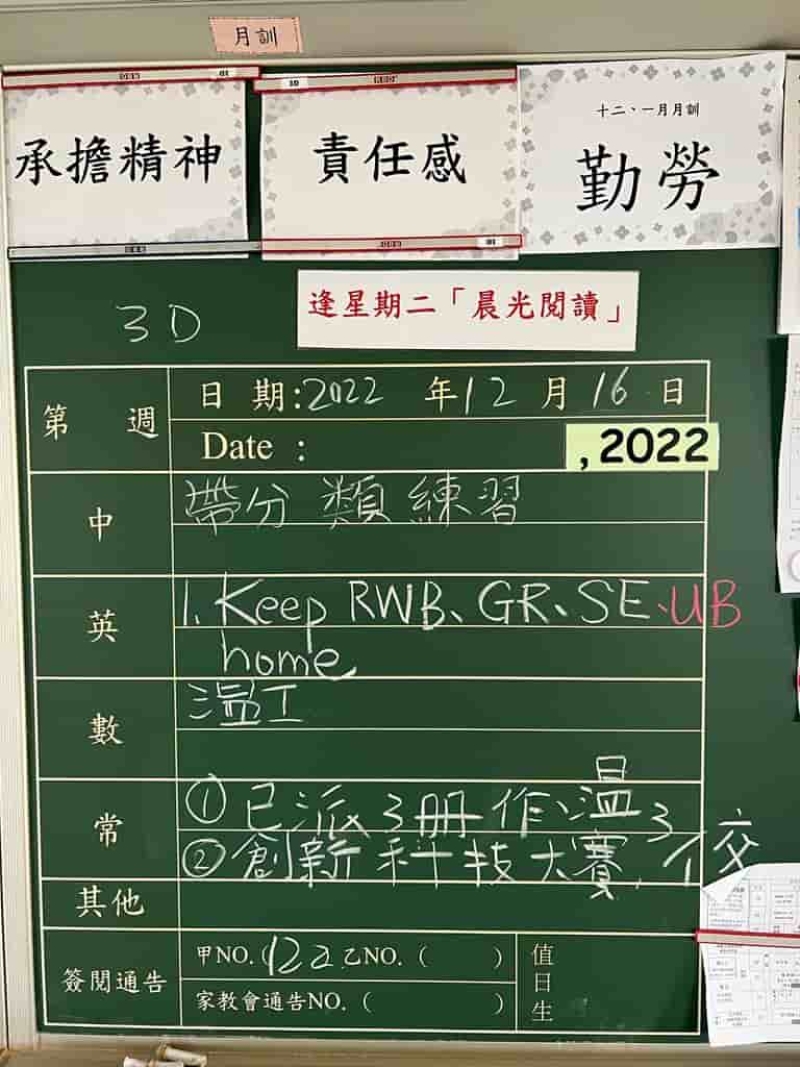 月訓
承擔精神
責任感
十二、一月月訓
勤勞
3D
逢星期二「晨光閱讀」
第 週
日 期:2022 年12 月 16 日
Date : ,2022
中
帶分類練習
英
1. Keep RWB、GR、SE、UB
home
數
溫工
常
① 已派3冊作溫
② 創新科技大賽
其他
簽閱通告
甲NO.(122 乙NO. ( )
家教會通告NO. ( )
值日生